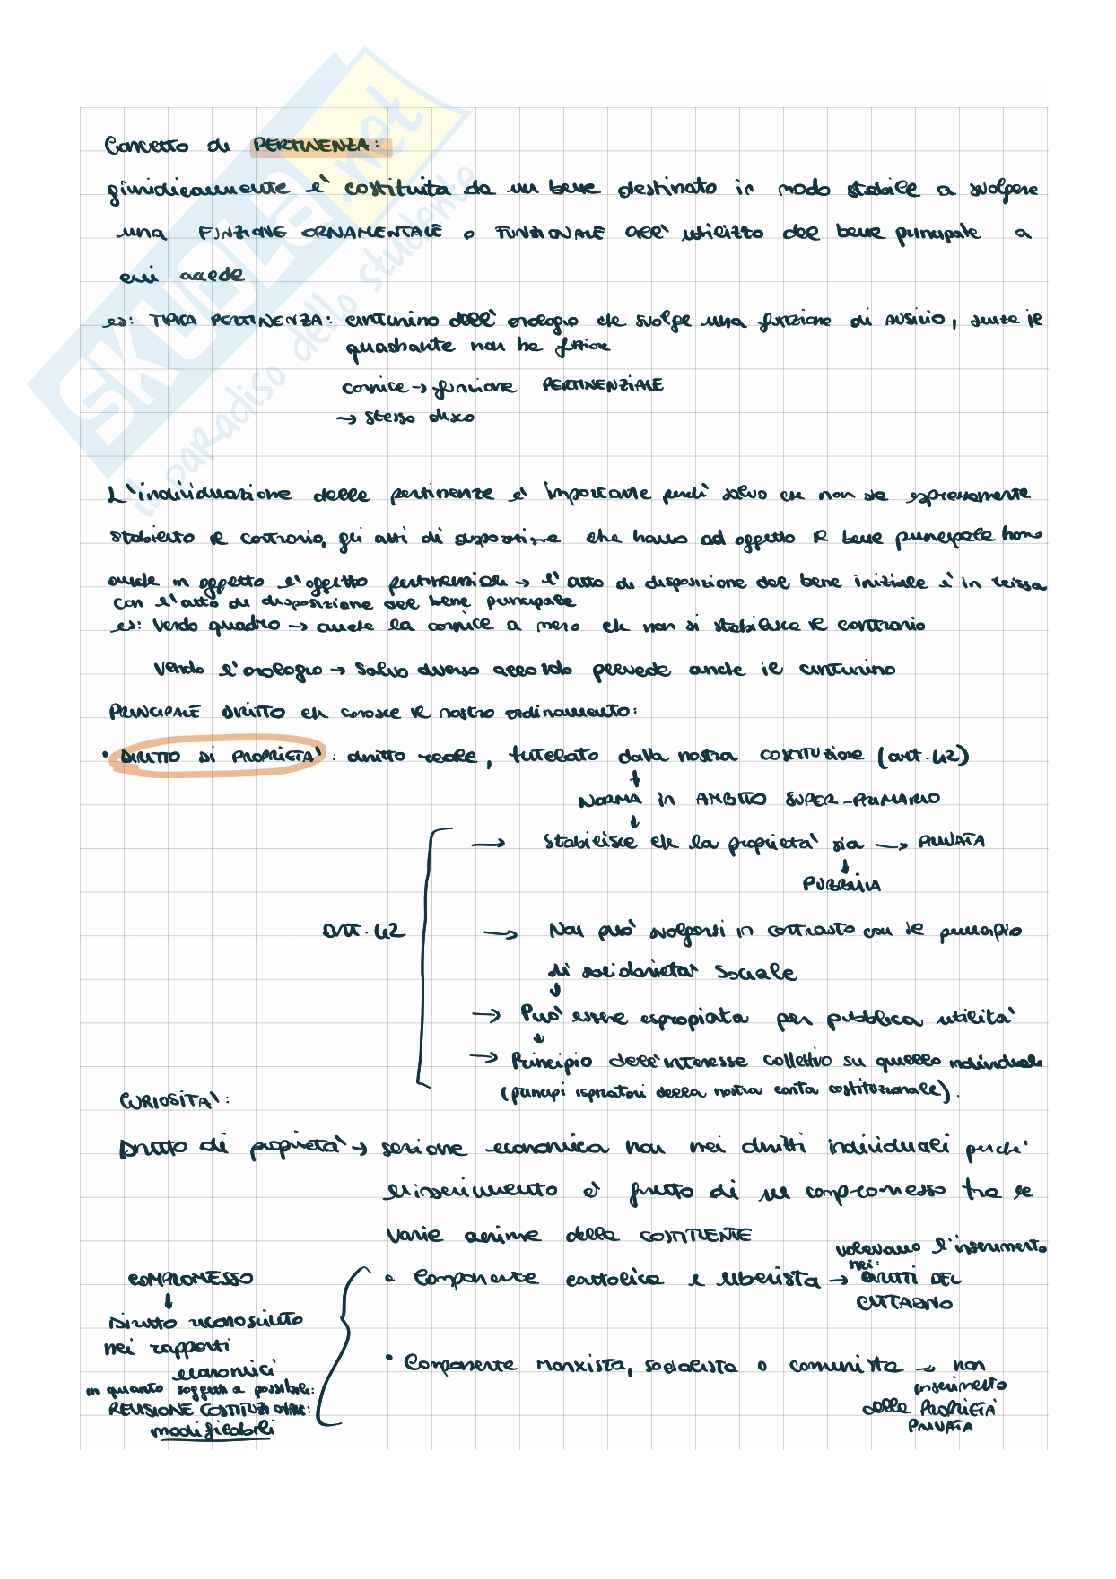 Concetto di PERTINENZA:
giuridicamente è costituita da un bene destinato in modo stabile a svolgere
una FUNZIONE ORNAMENTALE o FUNZIONALE all'utilizzo del bene principale a
cui accede
es: TIPICA PERTINENZA: cinturino dell'orologio che svolge una funzione di AUSILIO, senza il
quadrante non ha funzione
cornice → funzione PERTINENZIALE
→ stesso disco
L'individuazione delle pertinenze è importante perché salvo che non sia espressamente
stabilito il contrario, gli atti di disposizione che hanno ad oggetto il bene principale hanno
anche in oggetto l'oggetto pertinenziale → l'atto di disposizione del bene iniziale è in
con l'atto di disposizione del bene principale
es: Vendo quadro → anche la cornice a meno che non si stabilisca il contrario
Vendo l'orologio → salvo diverso accordo prevede anche il cinturino
PRINCIPALE DIRITTO che conosce il nostro ordinamento:
• DIRITTO DI PROPRIETA': diritto reale, tutelato dalla nostra COSTITUZIONE (art. 42)
↓
NORMA in AMBITO SUPER-PRIMARIO
↓
→ Stabilisce che la proprietà sia → PRIVATA
↓
PUBBLICA
art. 42
→ Non può svolgersi in contrasto con il principio
di solidarietà sociale
↓
→ Può essere espropiata per pubblica utilità
↓
→ Principio dell'interesse collettivo su quello individuale
(principi ispiratori della nostra carta costituzionale).
CURIOSITA':
Diritto di proprietà → sezione economica non nei diritti individuali perché
l'inserimento è frutto di un compromesso tra le
varie anime della COSTITUENTE
volevano l'inserimento
nei:
• Componente cattolica e liberista → DIRITTI DEL
CITTADINO
COMPROMESSO
↓
Diritto riconosciuto
nei rapporti
economici
in quanto soggetti a possibili:
REVISIONE COSTITUZIONALE:
modificabili
• Componente marxista, socialista o comunista → non
inserimento
della PROPRIETÀ
PRIVATA
SKUOLA.net
il paradiso dello studente